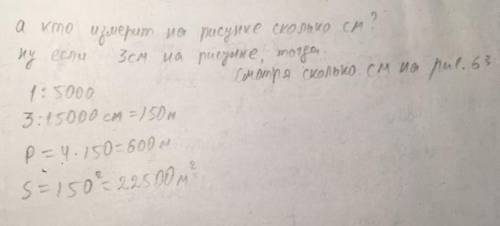 а кто измерит на рисунке сколько см?
ну если 3см на рисунке, тогда
Смотря сколько см на рис. 63
1:5000
3:15000 см = 150м
P = 4·150 = 600 м
S = 150² = 22500 м²